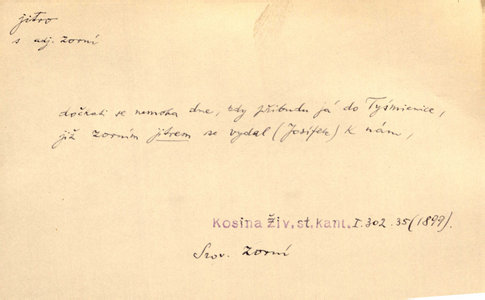 jitro
s adj. zorní
dočkati se nemoha dne, kdy přibudu já do Tyśmienice,
již zorním jitrem se vydal (Josífek) k nám,
Kosina Živ. st. kant. I. 302. 35 (1899).
Srov. zorní